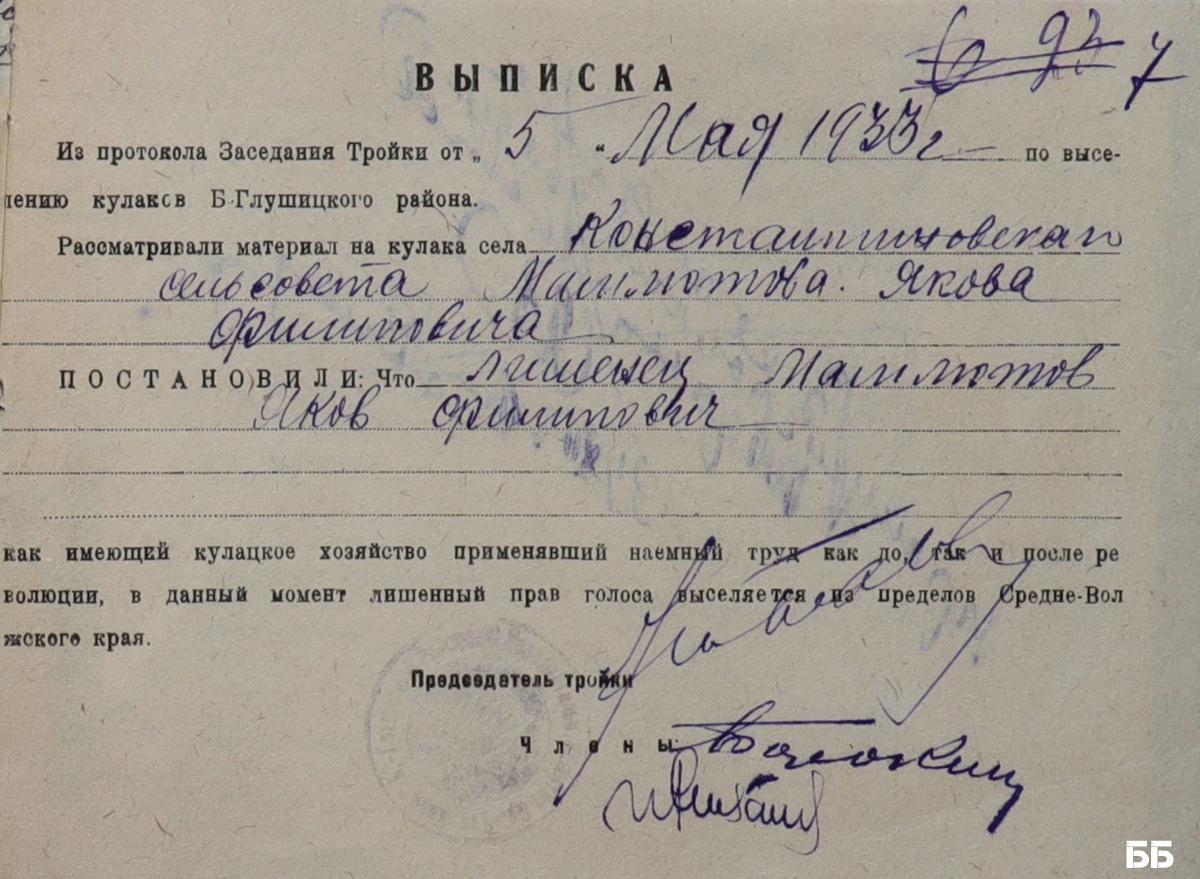 6 93 7
ВЫПИСКА
Из протокола Заседания Тройки от „ 5 “ Мая 1933 г по высе-
лению кулаков Б-Глушицкого района.
Рассматривали материал на кулака села Константиновскаго
сельсовета Малмютова. Якова
Филиповича
ПОСТАНОВИЛИ: Что лишенец Малмютов
Яков Филипович
как имеющий кулацкое хозяйство применявший наемный труд как до, так и после ре
волюции, в данный момент лишенный прав голоса выселяется из пределов Средне-Вол
жского края.
Председатель тройки
Члены
ББ